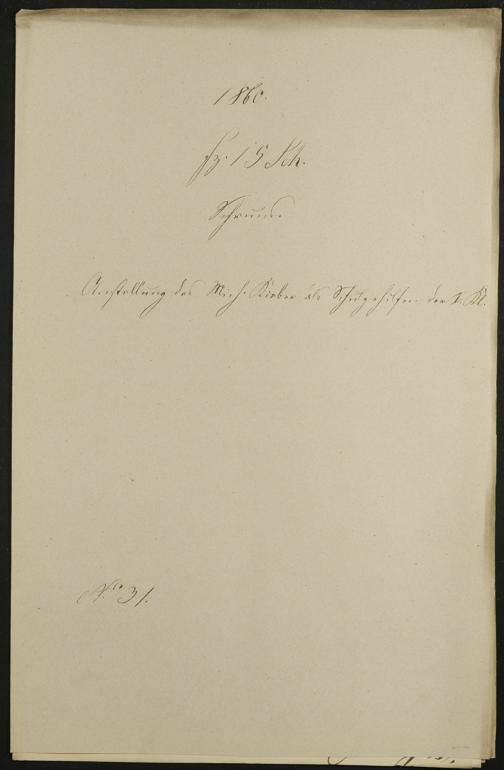 1860.
Fz. 15 Sch.
Schruns.
Anstellung des Mich. Kieber als Schulgehilfen der I. Kl.
Nro 31.